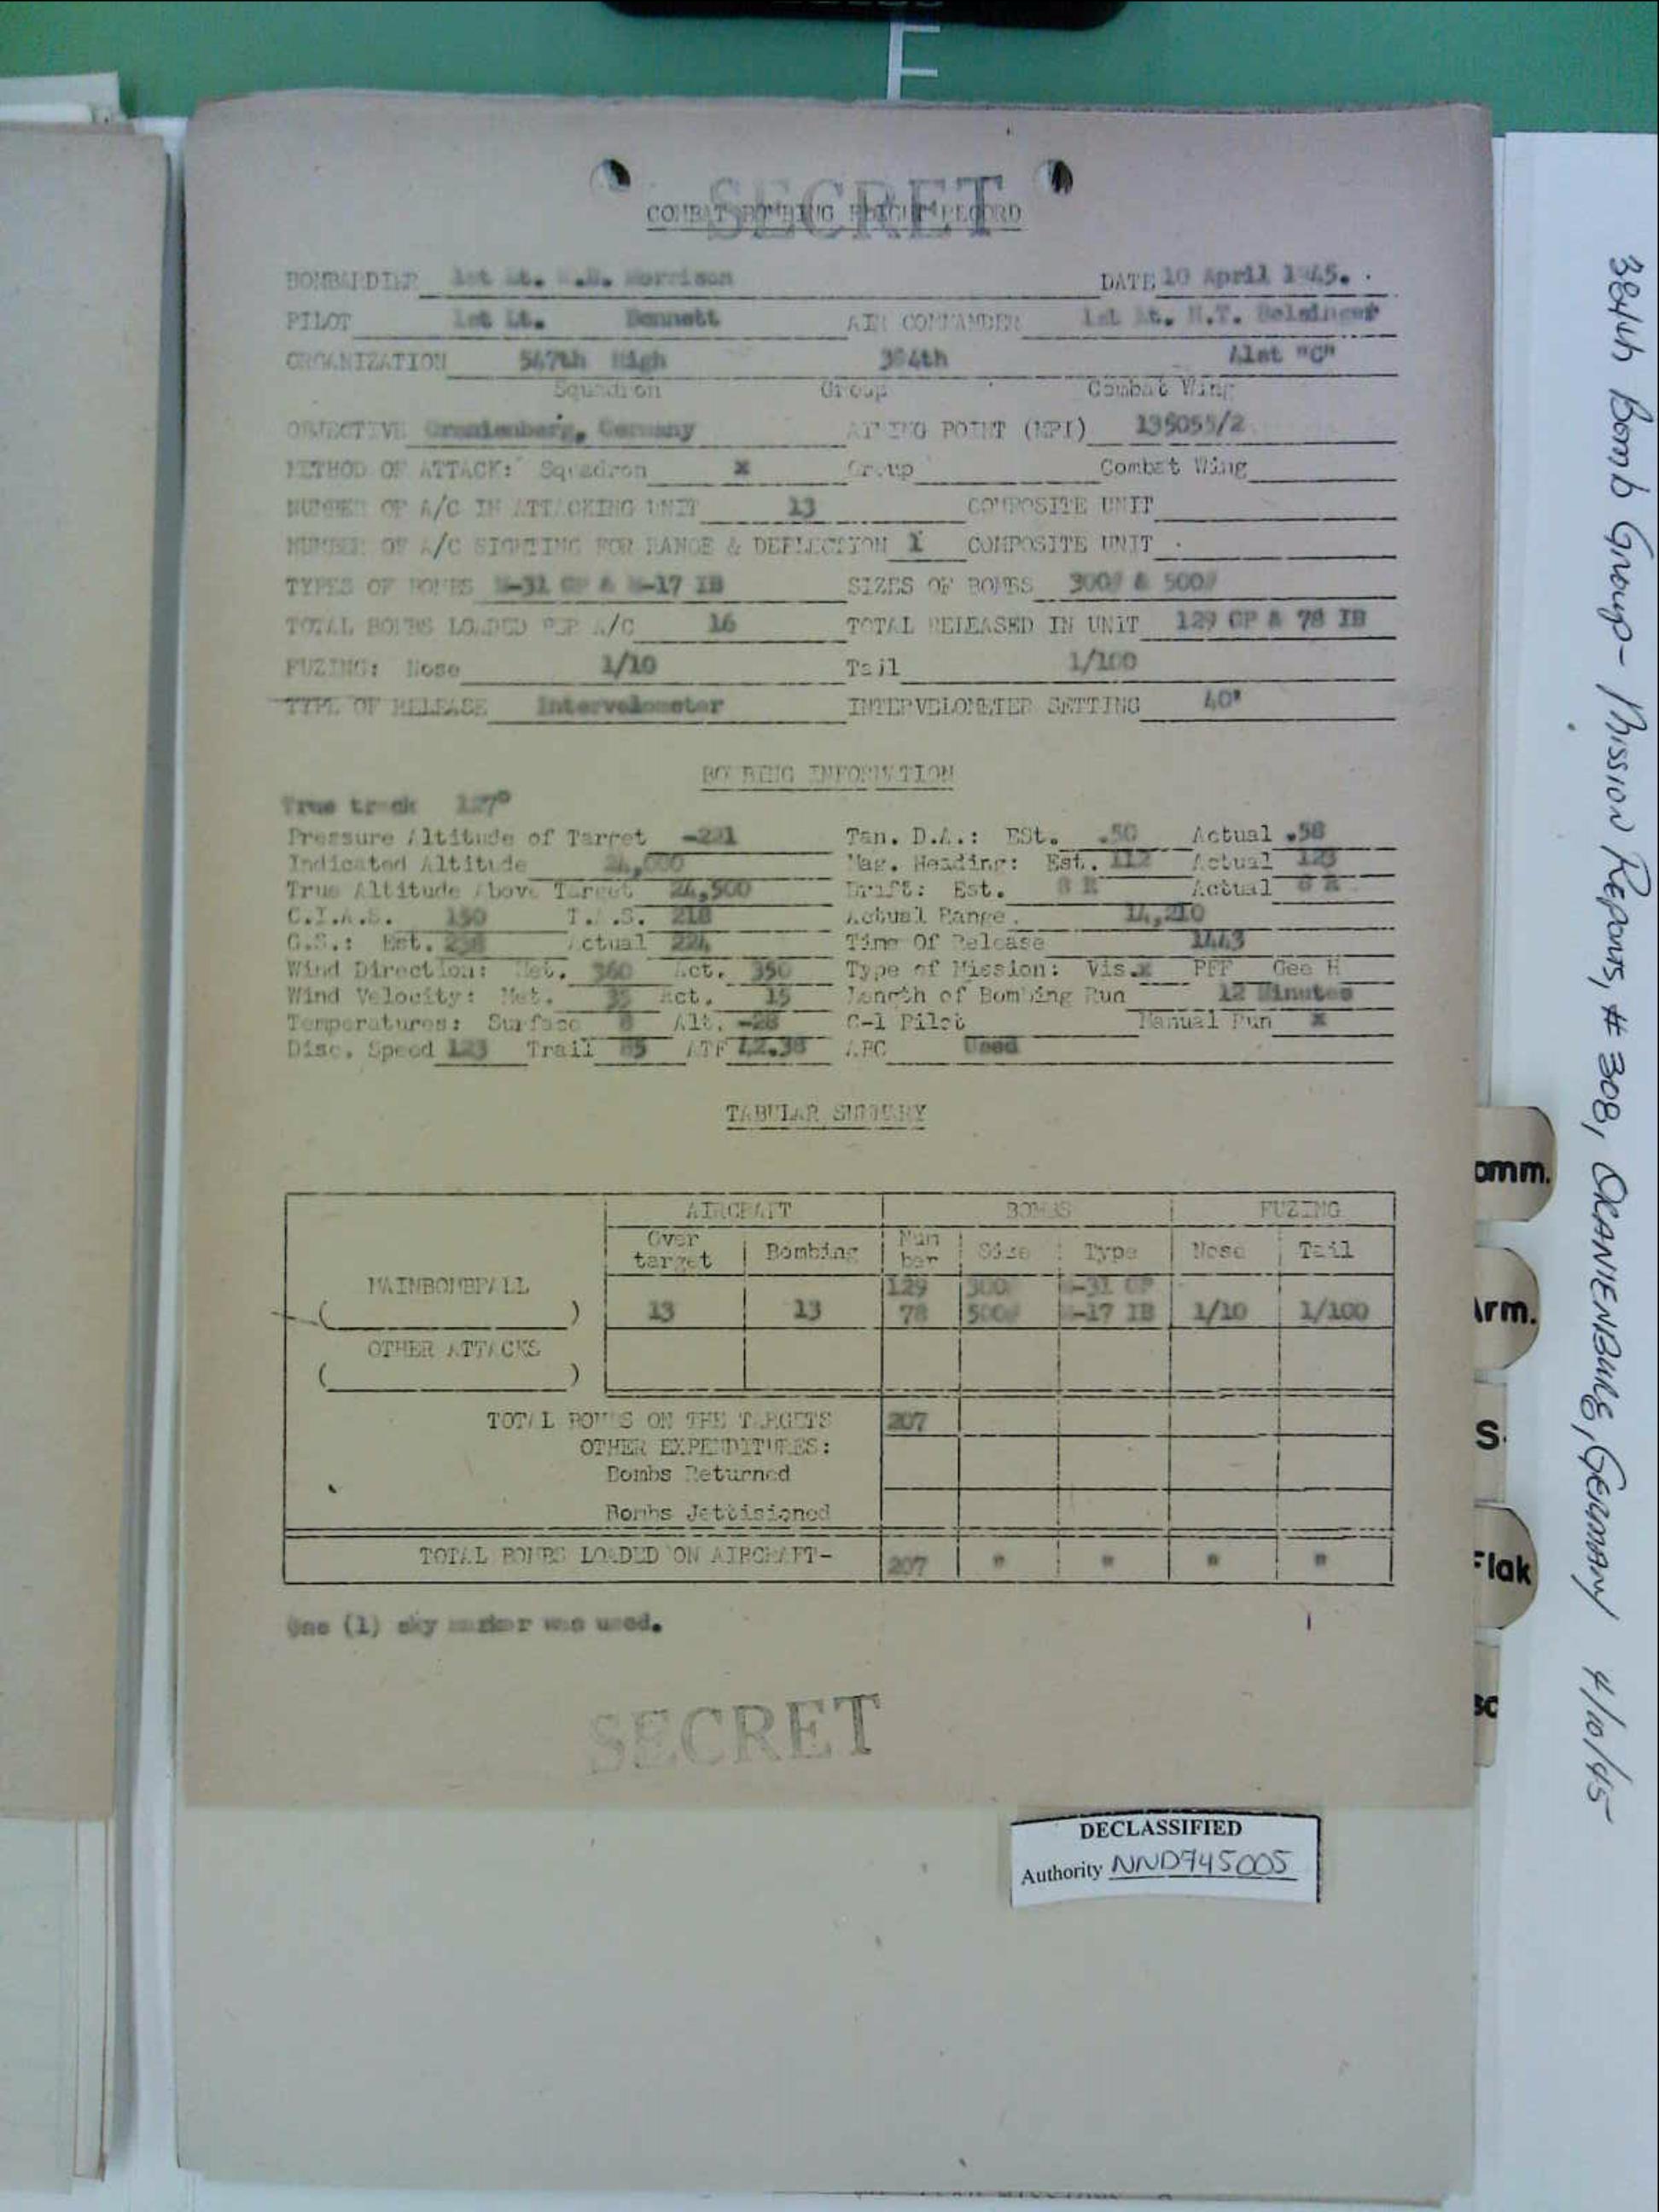 SECRET
COMBAT BOMBING FLIGHT RECORD
BOMBARDIER 1st Lt. Morrison DATE 10 April 1945.
PILOT 1st Lt. Bennett AIR COMMANDER 1st Lt. H.T. Belsinger
ORGANIZATION 547th High 384th Alst "C"
Squadron Group Combat Wing
OBJECTIVE Oranienberg, Germany AIMING POINT (MPI) 135055/2
METHOD OF ATTACK: Squadron x Group Combat Wing
NUMBER OF A/C IN ATTACKING UNIT 13 COMPOSITE UNIT
NUMBER OF A/C SIGHTING FOR RANGE & DEFLECTION 1 COMPOSITE UNIT
TYPES OF BOMBS M-31 GP & M-17 IB SIZES OF BOMBS 300# & 500#
TOTAL BOMBS LOADED PER A/C 16 TOTAL RELEASED IN UNIT 129 GP & 78 IB
FUZING: Nose 1/10 Tail 1/100
TYPE OF RELEASE Intervelometer INTERVELOMETER SETTING 40'
BOMBING INFORMATION
True track 127°
Pressure Altitude of Target -221 Tan. D.A.: Est. .50 Actual .58
Indicated Altitude 24,000 Mag. Heading: Est. 112 Actual 123
True Altitude Above Target 24,500 Drift: Est. 8 R Actual
C.I.A.S. 150 T.A.S. 218 Actual Range. 14,210
G.S.: Est. Actual 224 Time Of Release 1443
Wind Direction: Met. 360 Act. 350 Type of Mission: Vis. x PFF Gee H
Wind Velocity: Met. 35 Act. 15 Length of Bombing Run 12 Minutes
Temperatures: Surface Alt. -28 C-1 Pilot Manual Run x
Disc. Speed 123 Trail ATF 42.38 APC Used
TABULAR SUMMARY
AIRCRAFT BOMBS FUZING
Over target Bombing Num ber Size Type Nose Tail
MAINBOMBFALL 129 300# M-31 GP
( ) 13 13 78 500# M-17 IB 1/10 1/100
OTHER ATTACKS
( )
TOTAL BOMBS ON THE TARGETS 207
OTHER EXPENDITURES:
Bombs Returned
Bombs Jettisioned
TOTAL BOMBS LOADED ON AIRCRAFT- 207 " " " "
One (1) sky marker was used.
SECRET
DECLASSIFIED
Authority NND745005
omm.
Arm.
S-
Flak
sc
384th Bomb Group- Mission Reports, # 308, ORANIENBURG, GERMANY 4/10/45